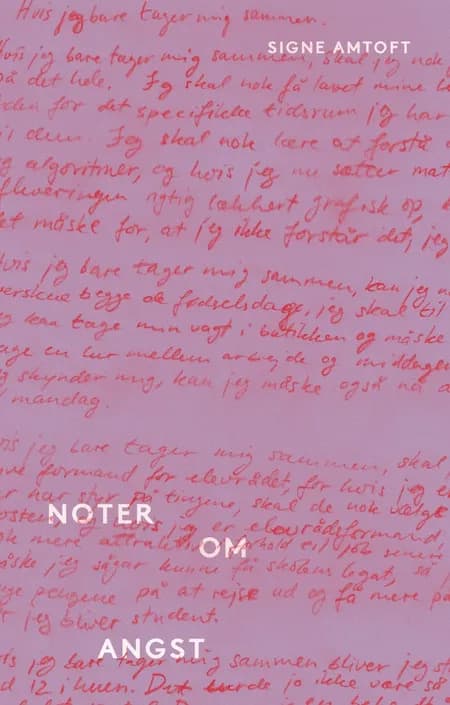 Hvis jeg bare tager mig sammen.
SIGNE AMTOFT
Hvis jeg bare tager mig sammen, skal jeg nok
på det hele. Jeg skal nok få lavet mine
inden for det specifikke tidsrum jeg har
til dem. Jeg skal nok lære at forstå
og algoritmer, og hvis jeg nu sætter mat
afleveringen rigtig lækkert grafisk op,
det måske for, at jeg ikke forstår det, jeg
Hvis jeg bare tager mig sammen, kan jeg
overskue begge to fødselsdage, jeg skal til
jeg kan tage min vagt i butikken og måske
tage en lur mellem arbejde og middagen
jeg skynder mig, kan jeg måske også nå
mandag.
Hvis jeg bare tager mig sammen, skal
formand for elevrådet, for hvis jeg
har styr på tingene, skal de nok vælge
NOTER
hvis jeg er elevrådsformand,
nok mere attraktiv i forhold til job senere
OM
måske jeg sågar kunne få skolens legat, så
pengene på at rejse ud og få mere på
jeg bliver student.
ANGST
Hvis jeg bare tager mig sammen bliver jeg
12 i huen. Det burde jo ikke være så